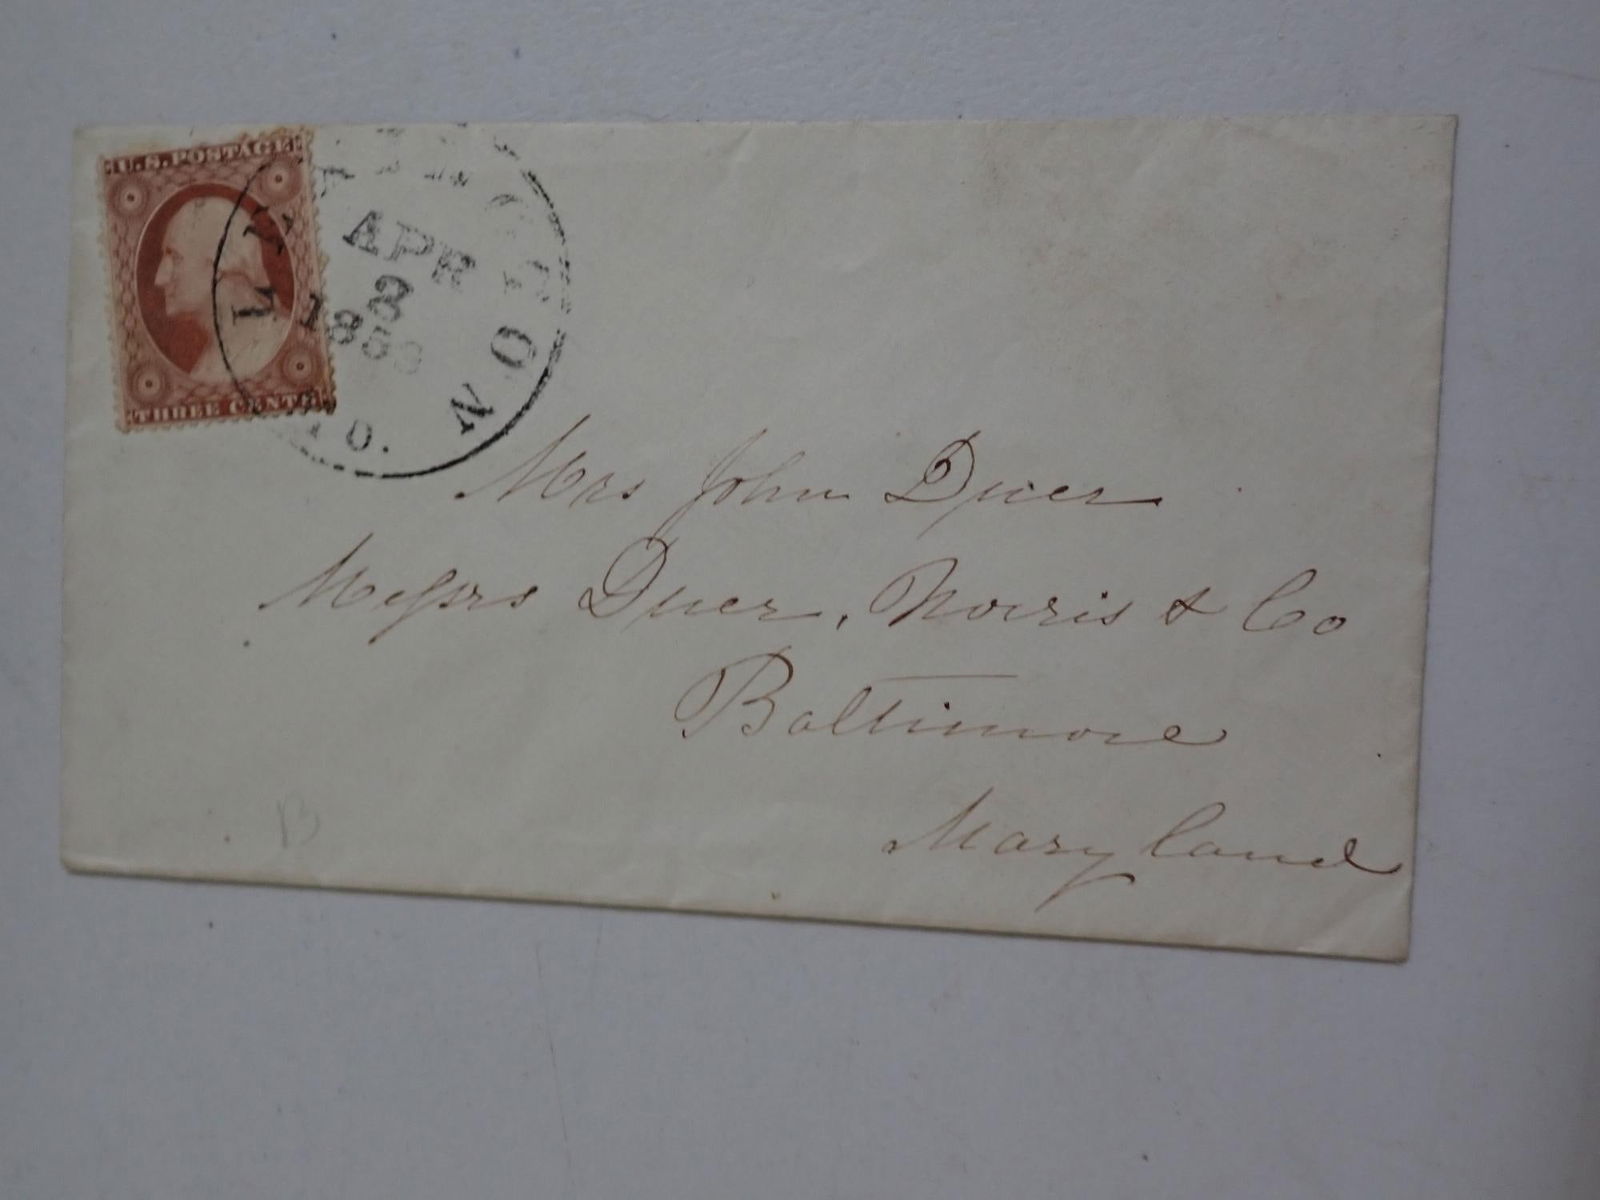 U.S. POSTAGE
THREE CENTS
WASHINGTON
APR
3
D.
Mrs John Duer
Messrs Duer, Norris & Co
Baltimore
Maryland
B